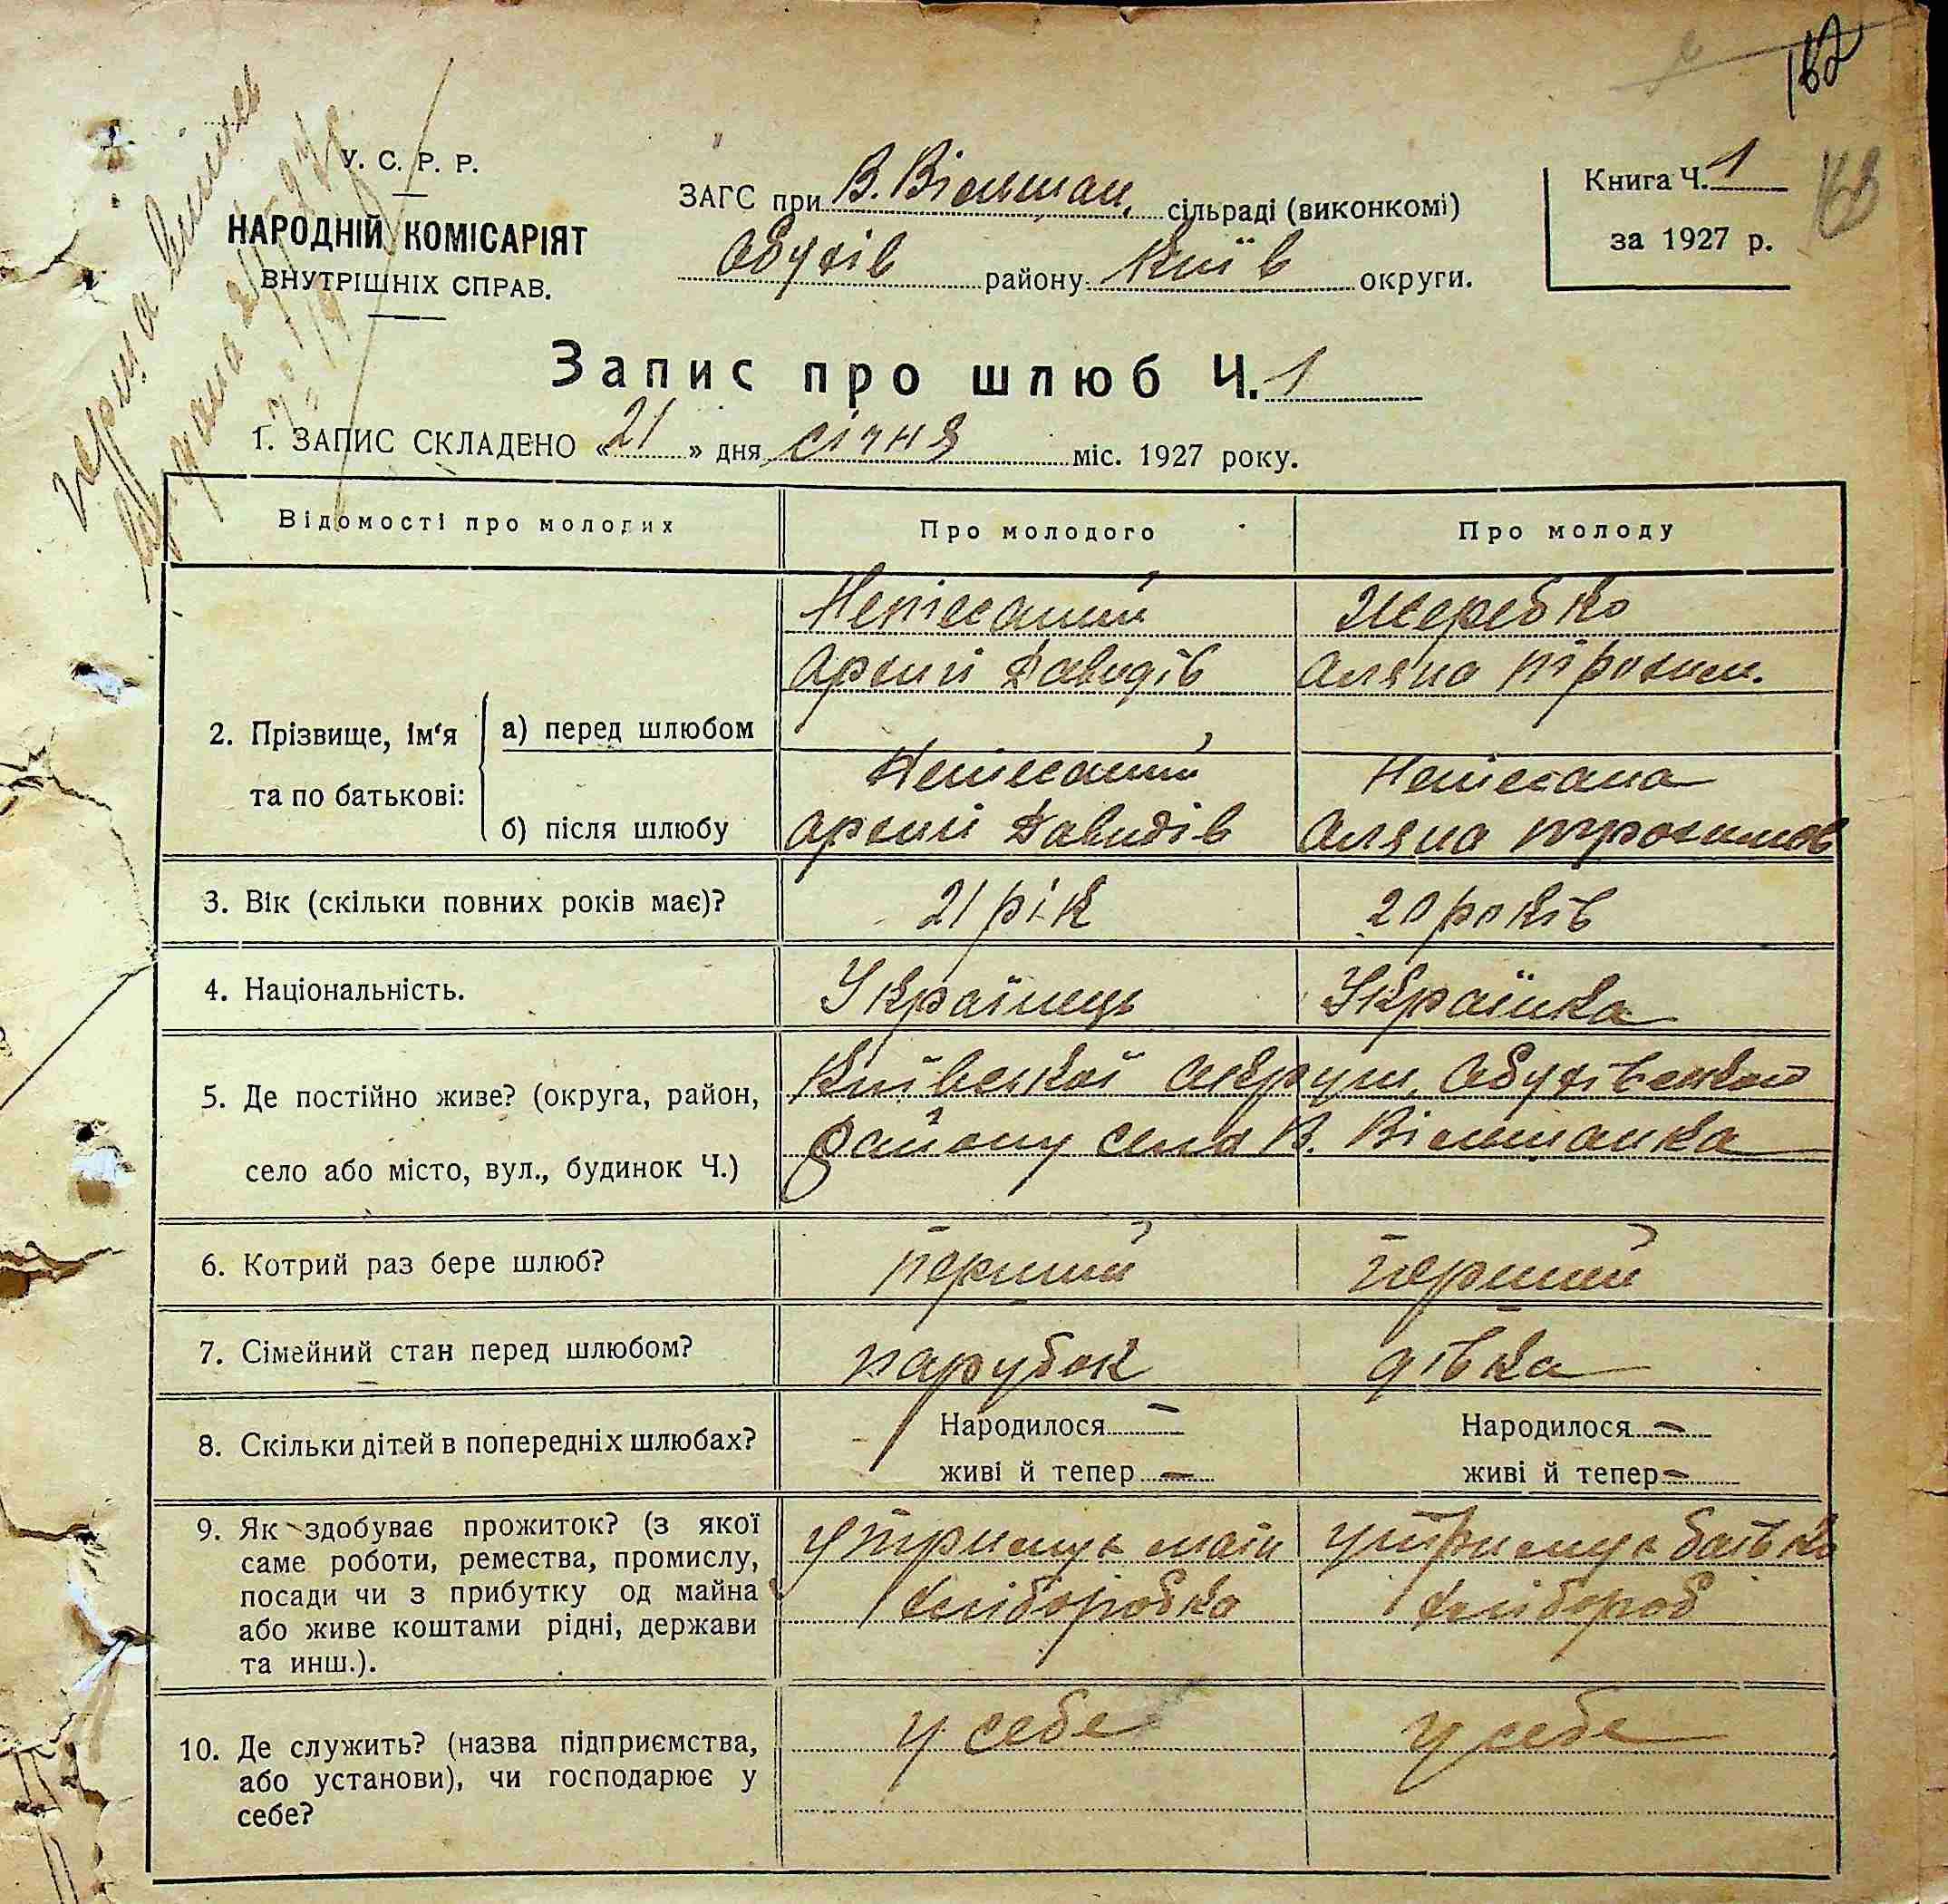 162
У. С. Р. Р.
НАРОДНІЙ КОМІСАРІЯТ
ВНУТРІШНІХ СПРАВ.
ЗАГС при В. Вільшан. сільраді (виконкомі)
Обухів району Київ округи.
Книга Ч. 1
за 1927 р.
Запис про шлюб Ч. 1
1. ЗАПИС СКЛАДЕНО « 21 » дня січня міс. 1927 року.
Відомості про молодих Про молодого Про молоду
Непісаний Жеребко
Арсеній Давидів Оляна Трохим.
2. Прізвище, ім'я та по батькові:
а) перед шлюбом
Непісаний Непісана
б) після шлюбу Арсеній Давидів Оляна Трохимов
3. Вік (скільки повних років має)? 21 рік 20 років
4. Національність. Українець Українка
5. Де постійно живе? (округа, район, Київської округи, Обухівського
село або місто, вул., будинок Ч.) району село В. Вільшанка
6. Котрий раз бере шлюб? перший перший
7. Сімейний стан перед шлюбом? парубок дівка
8. Скільки дітей в попередніх шлюбах? Народилося — Народилося —
живі й тепер — живі й тепер —
9. Як здобуває прожиток? (з якої утримує мати утримує батько
саме роботи, ремества, промислу,
посади чи з прибутку од майна хліборобка хлібороб
або живе коштами рідні, держави
та инш.).
10. Де служить? (назва підприємства, у себе у себе
або установи), чи господарює у
себе?